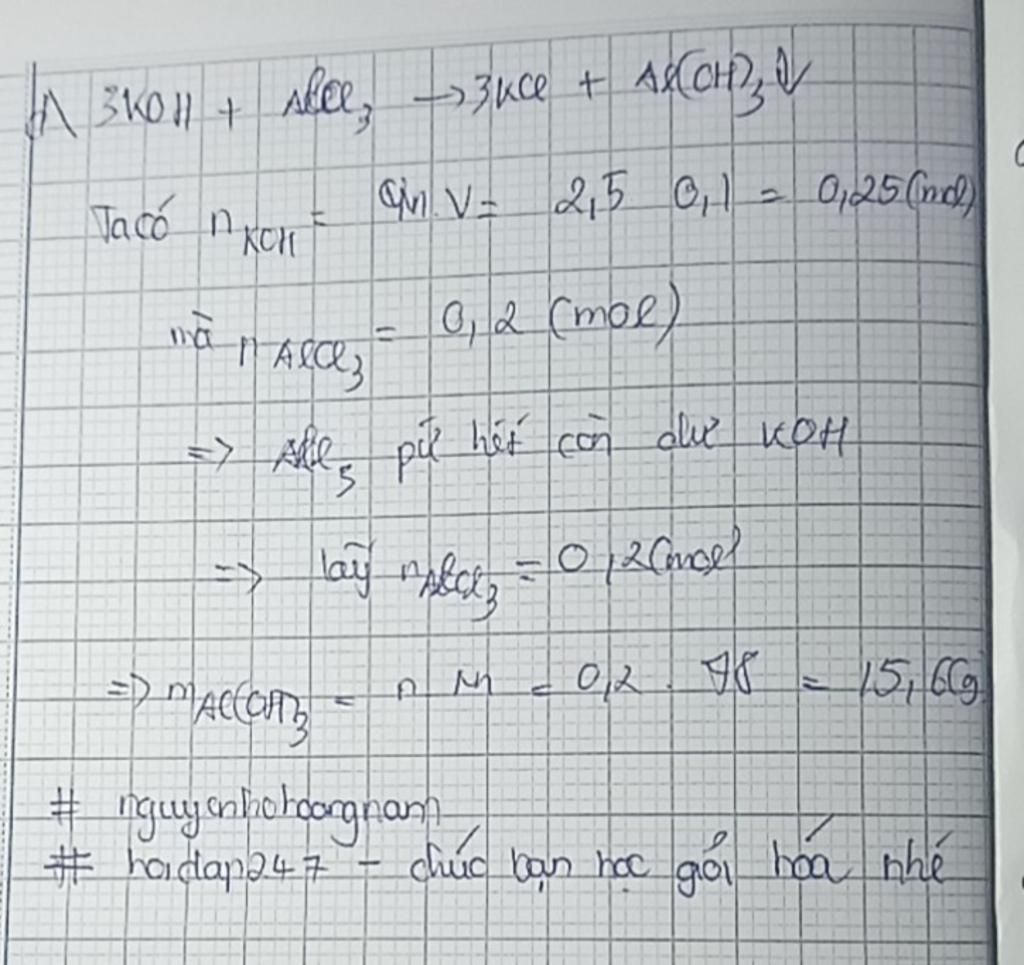 1\ 3KOH + AlCl3 → 3KCl + Al(OH)3↓
Ta có nKOH = CM.V = 2,5 0,1 = 0,25(mol)
mà n AlCl3 = 0,2 (mol)
=> AlCl3 pứ hết còn dư KOH
=> lấy nAlCl3 = 0,2(mol)
=> mAl(OH)3 = n M = 0,2 . 78 = 15,6(g)
# nguyenhohoangnam
# hoidap247 - chúc bạn học giỏi hóa nhé